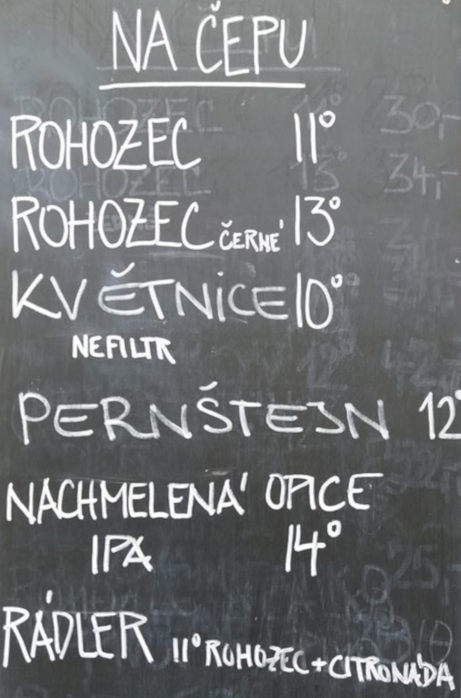 NA ČEPU
ROHOZEC 11°
ROHOZEC ČERNÉ 13°
KVĚTNICE 10°
NEFILTR
PERNŠTEJN 12°
NACHMELENÁ OPICE
IPA 14°
RÁDLER 11° ROHOZEC + CITRONÁDA